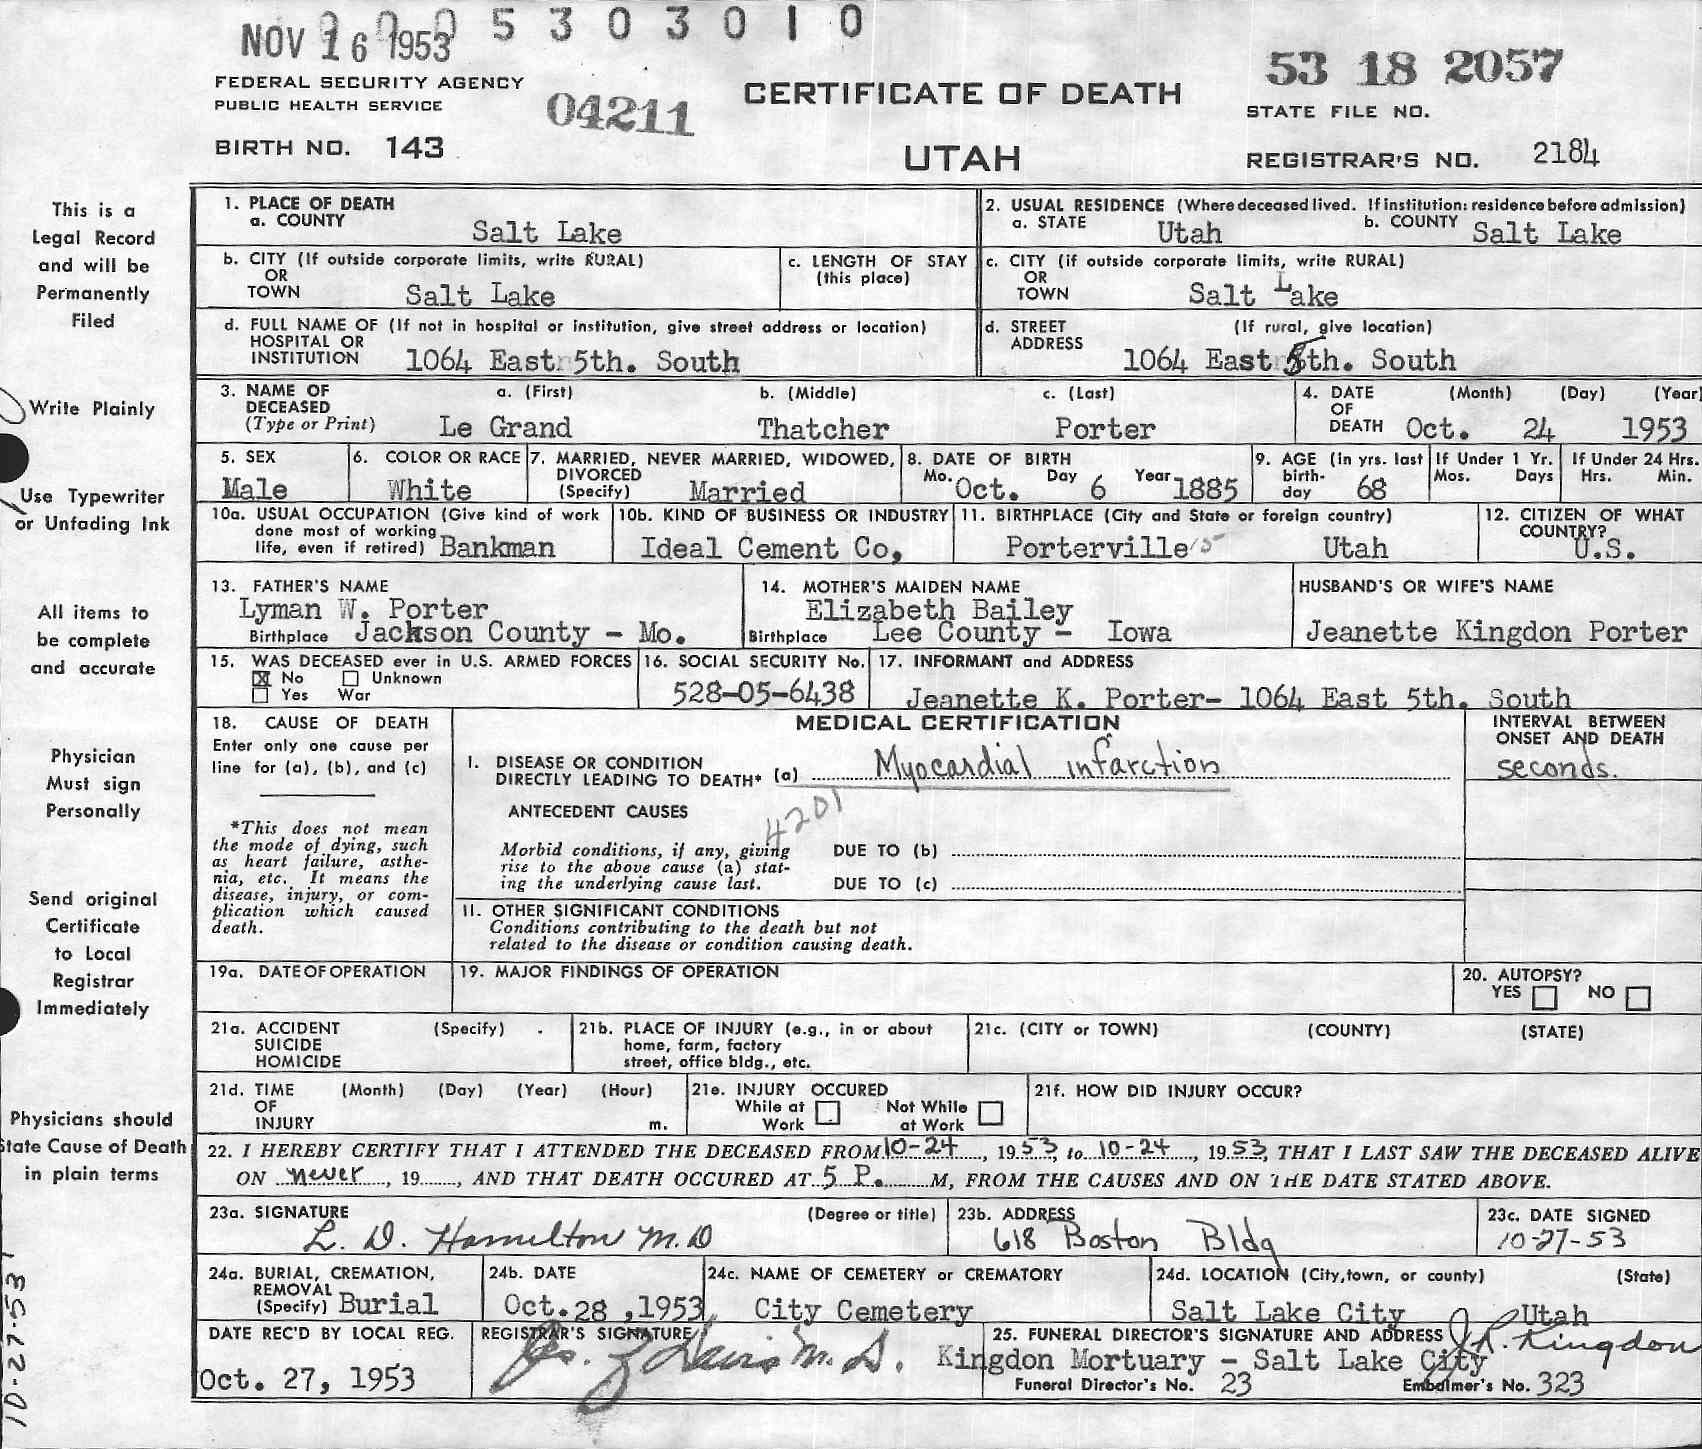 0 0 0 5 3 0 3 0 1 0
NOV 16 1953
FEDERAL SECURITY AGENCY
PUBLIC HEALTH SERVICE
04211
CERTIFICATE OF DEATH
53 18 2057
STATE FILE NO.
BIRTH NO. 143
UTAH
REGISTRAR'S NO. 2184
This is a
Legal Record
and will be
Permanently
Filed
Write Plainly
Use Typewriter
or Unfading Ink
All items to
be complete
and accurate
Physician
Must sign
Personally
Send original
Certificate
to Local
Registrar
Immediately
Physicians should
State Cause of Death
in plain terms
10-27-53
1. PLACE OF DEATH
a. COUNTY Salt Lake
2. USUAL RESIDENCE (Where deceased lived. If institution: residence before admission)
a. STATE Utah b. COUNTY Salt Lake
b. CITY (If outside corporate limits, write RURAL)
OR
TOWN Salt Lake
c. LENGTH OF STAY
(this place)
c. CITY (if outside corporate limits, write RURAL)
OR
TOWN Salt Lake
d. FULL NAME OF (If not in hospital or institution, give street address or location)
HOSPITAL OR
INSTITUTION 1064 East 5th. South
d. STREET (If rural, give location)
ADDRESS 1064 East 5th. South
3. NAME OF
DECEASED
(Type or Print)
a. (First) b. (Middle) c. (Last)
Le Grand Thatcher Porter
4. DATE (Month) (Day) (Year)
OF
DEATH Oct. 24 1953
5. SEX
Male
6. COLOR OR RACE
White
7. MARRIED, NEVER MARRIED, WIDOWED,
DIVORCED
(Specify) Married
8. DATE OF BIRTH
Mo. Oct. Day 6 Year 1885
9. AGE (in yrs. last
birth-
day 68
If Under 1 Yr.
Mos. Days
If Under 24 Hrs.
Hrs. Min.
10a. USUAL OCCUPATION (Give kind of work
done most of working
life, even if retired) Bankman
10b. KIND OF BUSINESS OR INDUSTRY
Ideal Cement Co,
11. BIRTHPLACE (City and State or foreign country)
Porterville Utah
12. CITIZEN OF WHAT
COUNTRY?
U.S.
13. FATHER'S NAME
Lyman W. Porter
Birthplace Jackson County - Mo.
14. MOTHER'S MAIDEN NAME
Elizabeth Bailey
Birthplace Lee County - Iowa
HUSBAND'S OR WIFE'S NAME
Jeanette Kingdon Porter
15. WAS DECEASED ever in U.S. ARMED FORCES
X No Unknown
Yes War
16. SOCIAL SECURITY No.
528-05-6438
17. INFORMANT and ADDRESS
Jeanette K. Porter- 1064 East 5th. South
18. CAUSE OF DEATH
Enter only one cause per
line for (a), (b), and (c)
*This does not mean
the mode of dying, such
as heart failure, asthe-
nia, etc. It means the
disease, injury, or com-
plication which caused
death.
MEDICAL CERTIFICATION
INTERVAL BETWEEN
ONSET AND DEATH
I. DISEASE OR CONDITION
DIRECTLY LEADING TO DEATH* (a) Myocardial infarction
seconds.
4201
ANTECEDENT CAUSES
Morbid conditions, if any, giving
rise to the above cause (a) stat-
ing the underlying cause last.
DUE TO (b)
DUE TO (c)
II. OTHER SIGNIFICANT CONDITIONS
Conditions contributing to the death but not
related to the disease or condition causing death.
19a. DATE OF OPERATION
19. MAJOR FINDINGS OF OPERATION
20. AUTOPSY?
YES NO
21a. ACCIDENT (Specify)
SUICIDE
HOMICIDE
21b. PLACE OF INJURY (e.g., in or about
home, farm, factory
street, office bldg., etc.
21c. (CITY or TOWN) (COUNTY) (STATE)
21d. TIME (Month) (Day) (Year) (Hour)
OF
INJURY m.
21e. INJURY OCCURED
While at Work Not While at Work
21f. HOW DID INJURY OCCUR?
22. I HEREBY CERTIFY THAT I ATTENDED THE DECEASED FROM 10-24, 1953, to 10-24, 1953, THAT I LAST SAW THE DECEASED ALIVE
ON never, 19....., AND THAT DEATH OCCURED AT 5 P. M, FROM THE CAUSES AND ON THE DATE STATED ABOVE.
23a. SIGNATURE (Degree or title)
L. D. Hamilton M.D
23b. ADDRESS
618 Boston Bldg
23c. DATE SIGNED
10-27-53
24a. BURIAL, CREMATION,
REMOVAL
(Specify) Burial
24b. DATE
Oct. 28, 1953
24c. NAME OF CEMETERY or CREMATORY
City Cemetery
24d. LOCATION (City, town, or county) (State)
Salt Lake City Utah
DATE REC'D BY LOCAL REG.
Oct. 27, 1953
REGISTRAR'S SIGNATURE
Davis M. D.
25. FUNERAL DIRECTOR'S SIGNATURE AND ADDRESS J. R. Kingdon
Kingdon Mortuary - Salt Lake City
Funeral Director's No. 23 Embalmer's No. 323